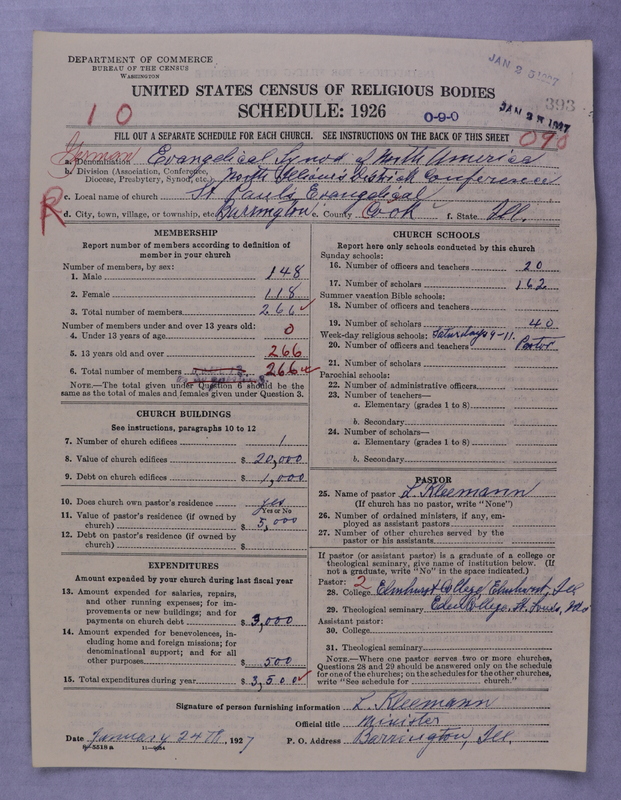 DEPARTMENT OF COMMERCE
BUREAU OF THE CENSUS
WASHINGTON
JAN 25 1927
UNITED STATES CENSUS OF RELIGIOUS BODIES
SCHEDULE: 1926
10
0-9-0
JAN 25 1927
393
090
FILL OUT A SEPARATE SCHEDULE FOR EACH CHURCH. SEE INSTRUCTIONS ON THE BACK OF THIS SHEET
German
a. Denomination Evangelical Synod of North America
b. Division (Association, Conference, Diocese, Presbytery, Synod, etc.) North Illinois District Conference
c. Local name of church St Pauls Evangelical
R
d. City, town, village, or township, etc. Barrington e. County Cook f. State Ill.
MEMBERSHIP
Report number of members according to definition of member in your church
Number of members, by sex:
1. Male 148
2. Female 118
3. Total number of members 266 ✓
Number of members under and over 13 years old:
4. Under 13 years of age 0
5. 13 years old and over 266
6. Total number of members 266 ✓
NOTE.—The total given under Question 6 should be the same as the total of males and females given under Question 3.
CHURCH BUILDINGS
See instructions, paragraphs 10 to 12
7. Number of church edifices 1
8. Value of church edifices $ 20,000
9. Debt on church edifices $ 1,000
10. Does church own pastor's residence yes
Yes or No
11. Value of pastor's residence (if owned by church) $ 5,000
12. Debt on pastor's residence (if owned by church) $
EXPENDITURES
Amount expended by your church during last fiscal year
13. Amount expended for salaries, repairs, and other running expenses; for improvements or new buildings; and for payments on church debt $ 3,000
14. Amount expended for benevolences, including home and foreign missions; for denominational support; and for all other purposes $ 500
15. Total expenditures during year $ 3,500 ✓
CHURCH SCHOOLS
Report here only schools conducted by this church
Sunday schools:
16. Number of officers and teachers 20
17. Number of scholars 162
Summer vacation Bible schools:
18. Number of officers and teachers
19. Number of scholars 40
Week-day religious schools: Saturdays 9-11.
20. Number of officers and teachers Pastor
21. Number of scholars
Parochial schools:
22. Number of administrative officers
23. Number of teachers—
a. Elementary (grades 1 to 8)
b. Secondary
24. Number of scholars—
a. Elementary (grades 1 to 8)
b. Secondary
PASTOR
25. Name of pastor L. Kleemann
(If church has no pastor, write "None")
26. Number of ordained ministers, if any, employed as assistant pastors
27. Number of other churches served by the pastor or his assistants
If pastor (or assistant pastor) is a graduate of a college or theological seminary, give name of institution below. (If not a graduate, write "No" in the space indicated.)
Pastor: 2
28. College Elmhurst College, Elmhurst, Ill
29. Theological seminary Eden College, St. Louis, Mo
Assistant pastor:
30. College
31. Theological seminary
NOTE.—Where one pastor serves two or more churches, Questions 28 and 29 should be answered only on the schedule for one of the churches; on the schedules for the other churches, write "See schedule for church."
Signature of person furnishing information L. Kleemann
Official title Minister
Date January 24th, 1927 P. O. Address Barrington, Ill.
8-5518 a